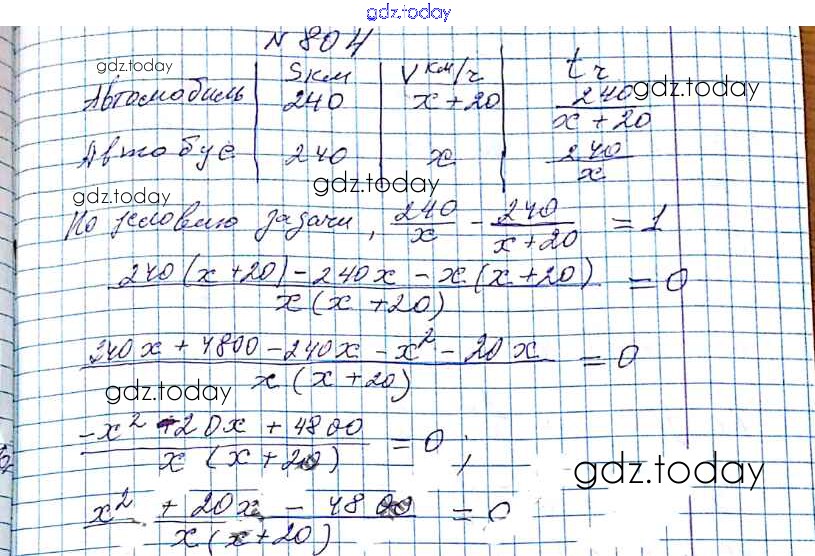 gdz.today
N 804
gdz.today
S км V км/ч t ч
Автомобиль 240 x + 20 240/(x + 20)
gdz.today
Автобус 240 x 240/x
gdz.today
gdz.today
По условию задачи, 240/x - 240/(x + 20) = 1
(240(x + 20) - 240x - x(x + 20))/(x(x + 20)) = 0
(240x + 4800 - 240x - x² - 20x)/(x(x + 20)) = 0
gdz.today
(-x² - 20x + 4800)/(x(x + 20)) = 0;
gdz.today
(x² + 20x - 4800)/(x(x + 20)) = 0